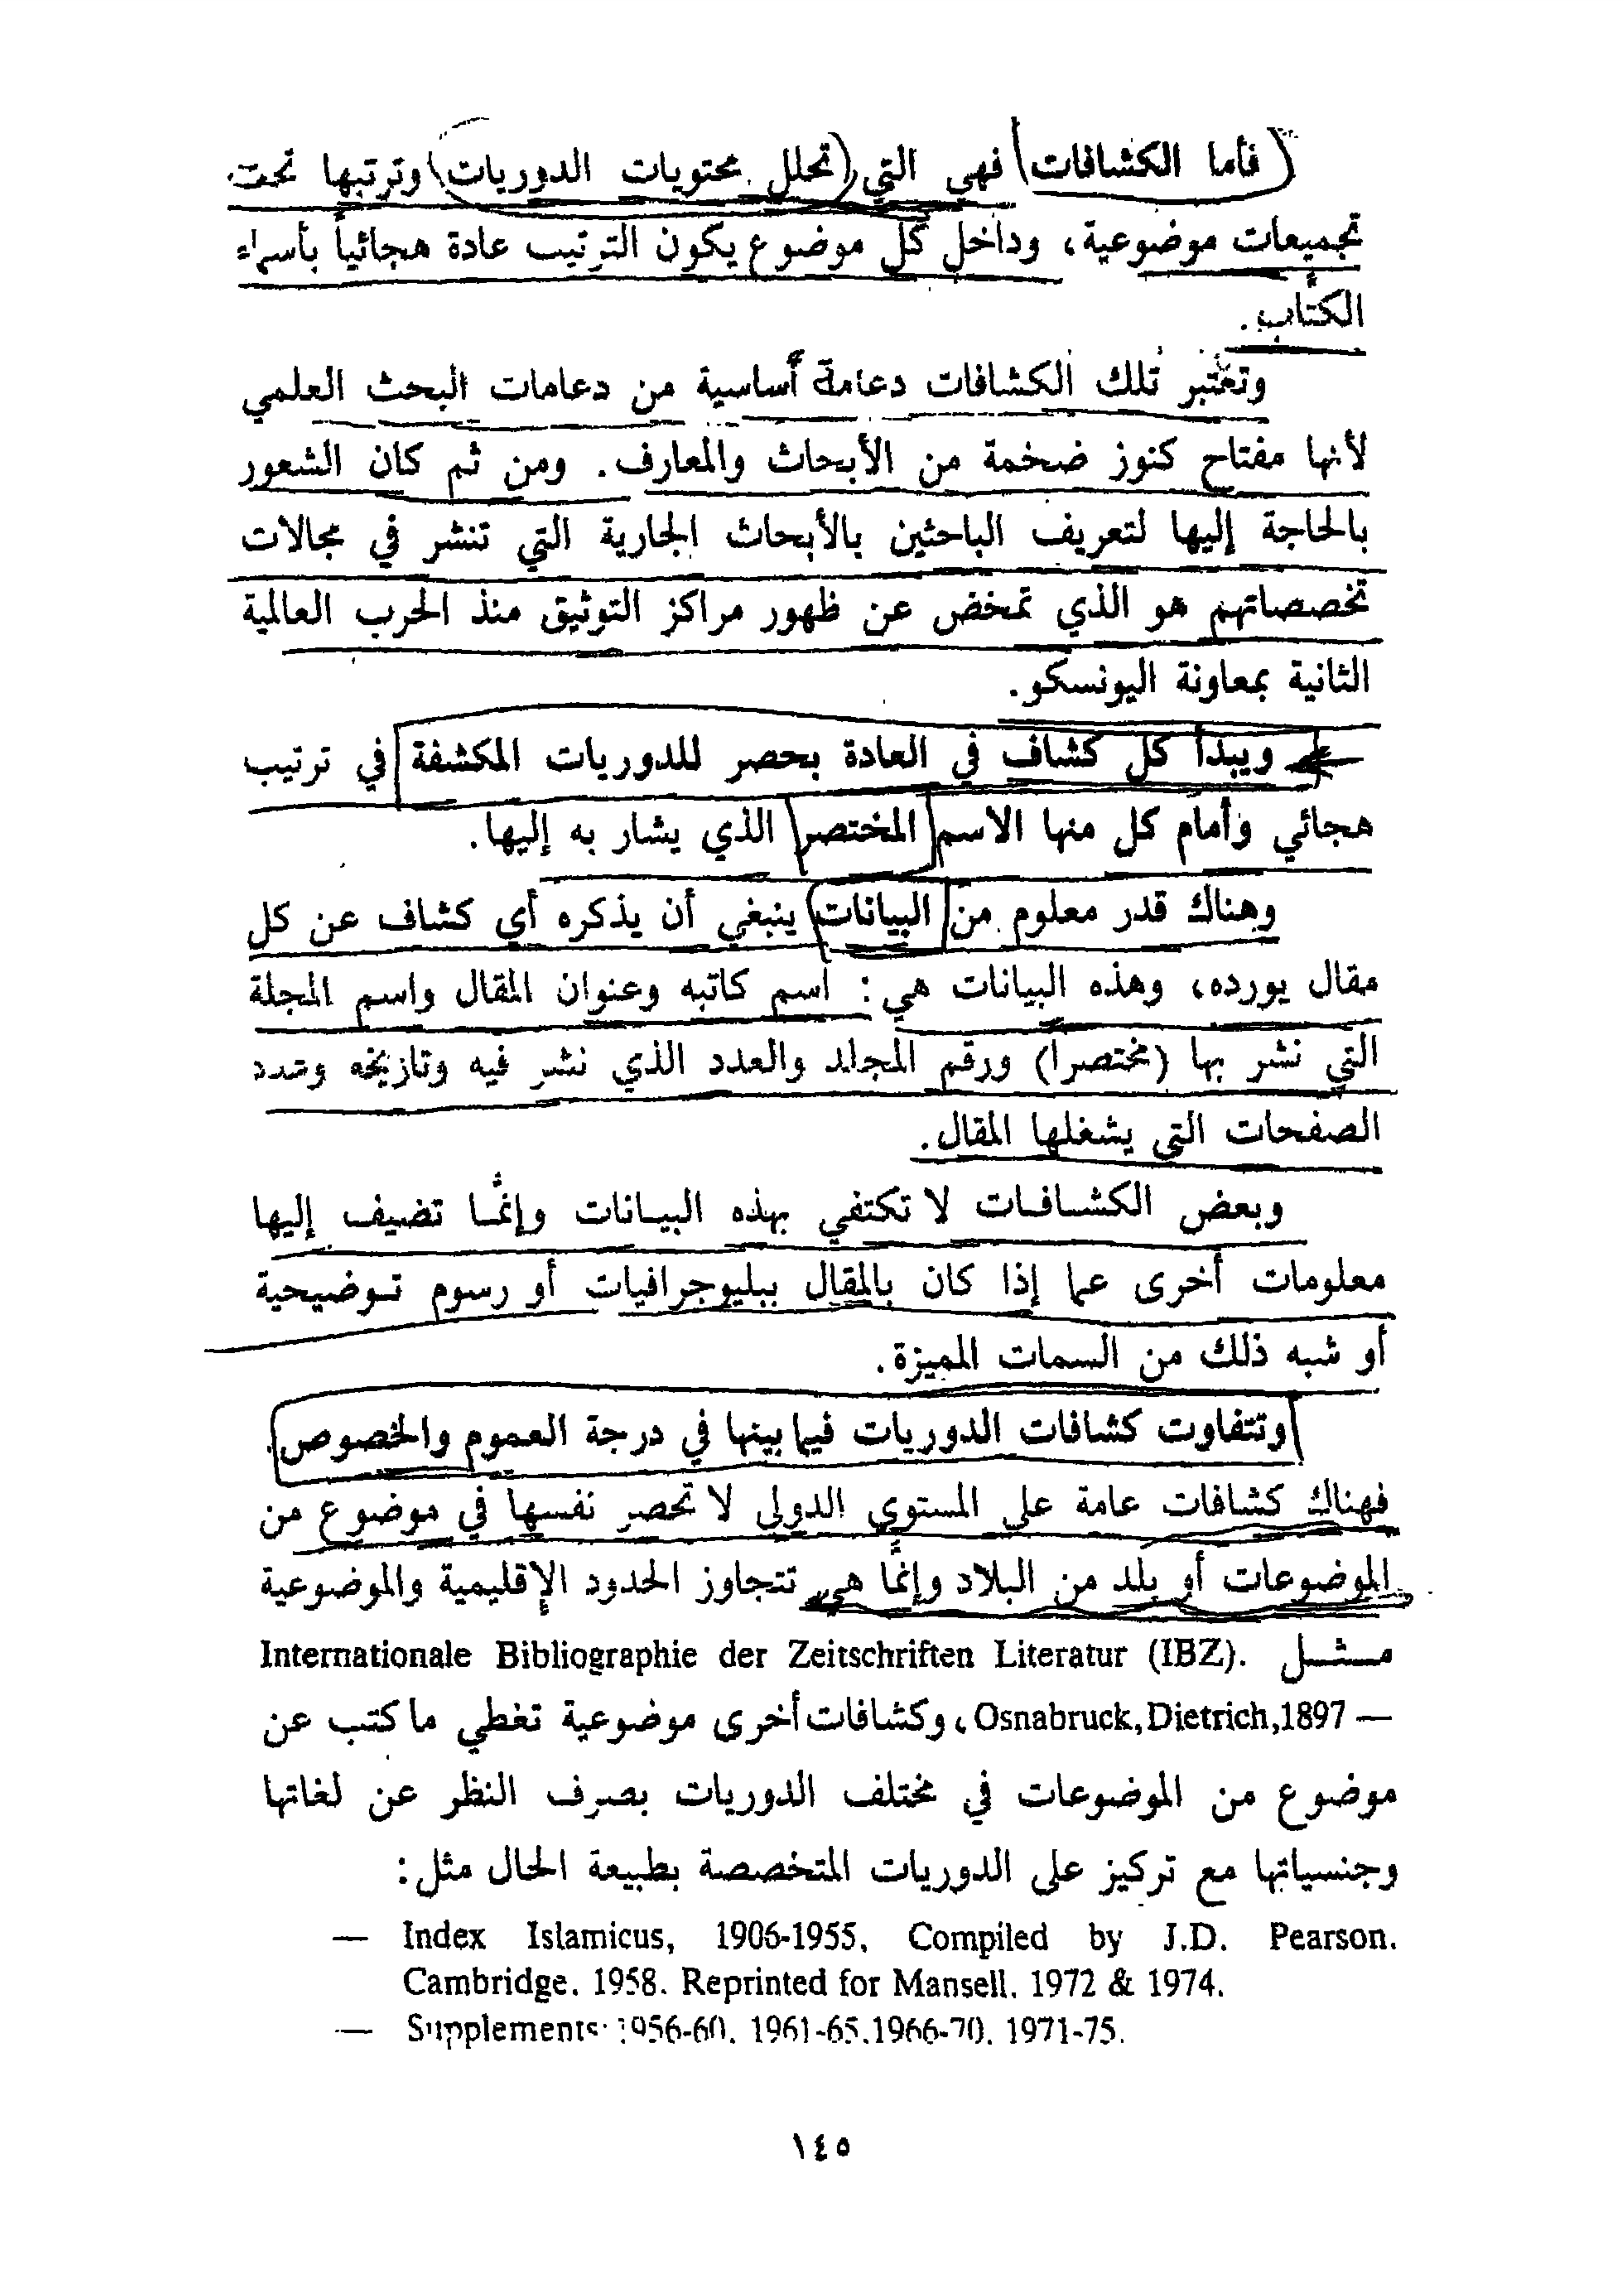 فأما الكشافات فهي التي تحلل محتويات الدوريات وترتبها تحت
تجميعات موضوعية، وداخل كل موضوع يكون الترتيب عادة هجائياً بأسماء
الكتَّاب.
وتعتبر تلك الكشافات دعامة أساسية من دعامات البحث العلمي
لأنها مفتاح كنوز ضخمة من الأبحاث والمعارف. ومن ثم كان الشعور
بالحاجة إليها لتعريف الباحثين بالأبحاث الجارية التي تنشر في مجالات
تخصصاتهم هو الذي تمخض عن ظهور مراكز التوثيق منذ الحرب العالمية
الثانية بمعاونة اليونسكو.
ويبدأ كل كشاف في العادة بحصر للدوريات المكشفة في ترتيب
هجائي وأمام كل منها الاسم المختصر الذي يشار به إليها.
وهناك قدر معلوم من البيانات ينبغي أن يذكره أي كشاف عن كل
مقال يورده، وهذه البيانات هي: اسم كاتبه وعنوان المقال واسم المجلة
التي نشر بها (مختصراً) ورقم المجلد والعدد الذي نشر فيه وتاريخه وعدد
الصفحات التي يشغلها المقال.
وبعض الكشافات لا تكتفي بهذه البيانات وإنمَّا تضيف إليها
معلومات أخرى عما إذا كان بالمقال ببليوجرافيات أو رسوم توضيحية
أو شبه ذلك من السمات المميزة.
وتتفاوت كشافات الدوريات فيما بينها في درجة العموم والخصوص.
فهناك كشافات عامة على المستوى الدولي لا تحصر نفسها في موضوع من
الموضوعات أو بلد من البلاد وإنمَّا هي تتجاوز الحدود الإقليمية والموضوعية
مثل Internationale Bibliographie der Zeitschriften Literatur (IBZ).
— Osnabruck, Dietrich, 1897، وكشافات أخرى موضوعية تغطي ما كتب عن
موضوع من الموضوعات في مختلف الدوريات بصرف النظر عن لغاتها
وجنسياتها مع تركيز على الدوريات المتخصصة بطبيعة الحال مثل:
— Index Islamicus, 1906-1955, Compiled by J.D. Pearson.
Cambridge. 1958. Reprinted for Mansell. 1972 & 1974.
— Supplements: 1956-60. 1961-65. 1966-70. 1971-75.
١٤٥